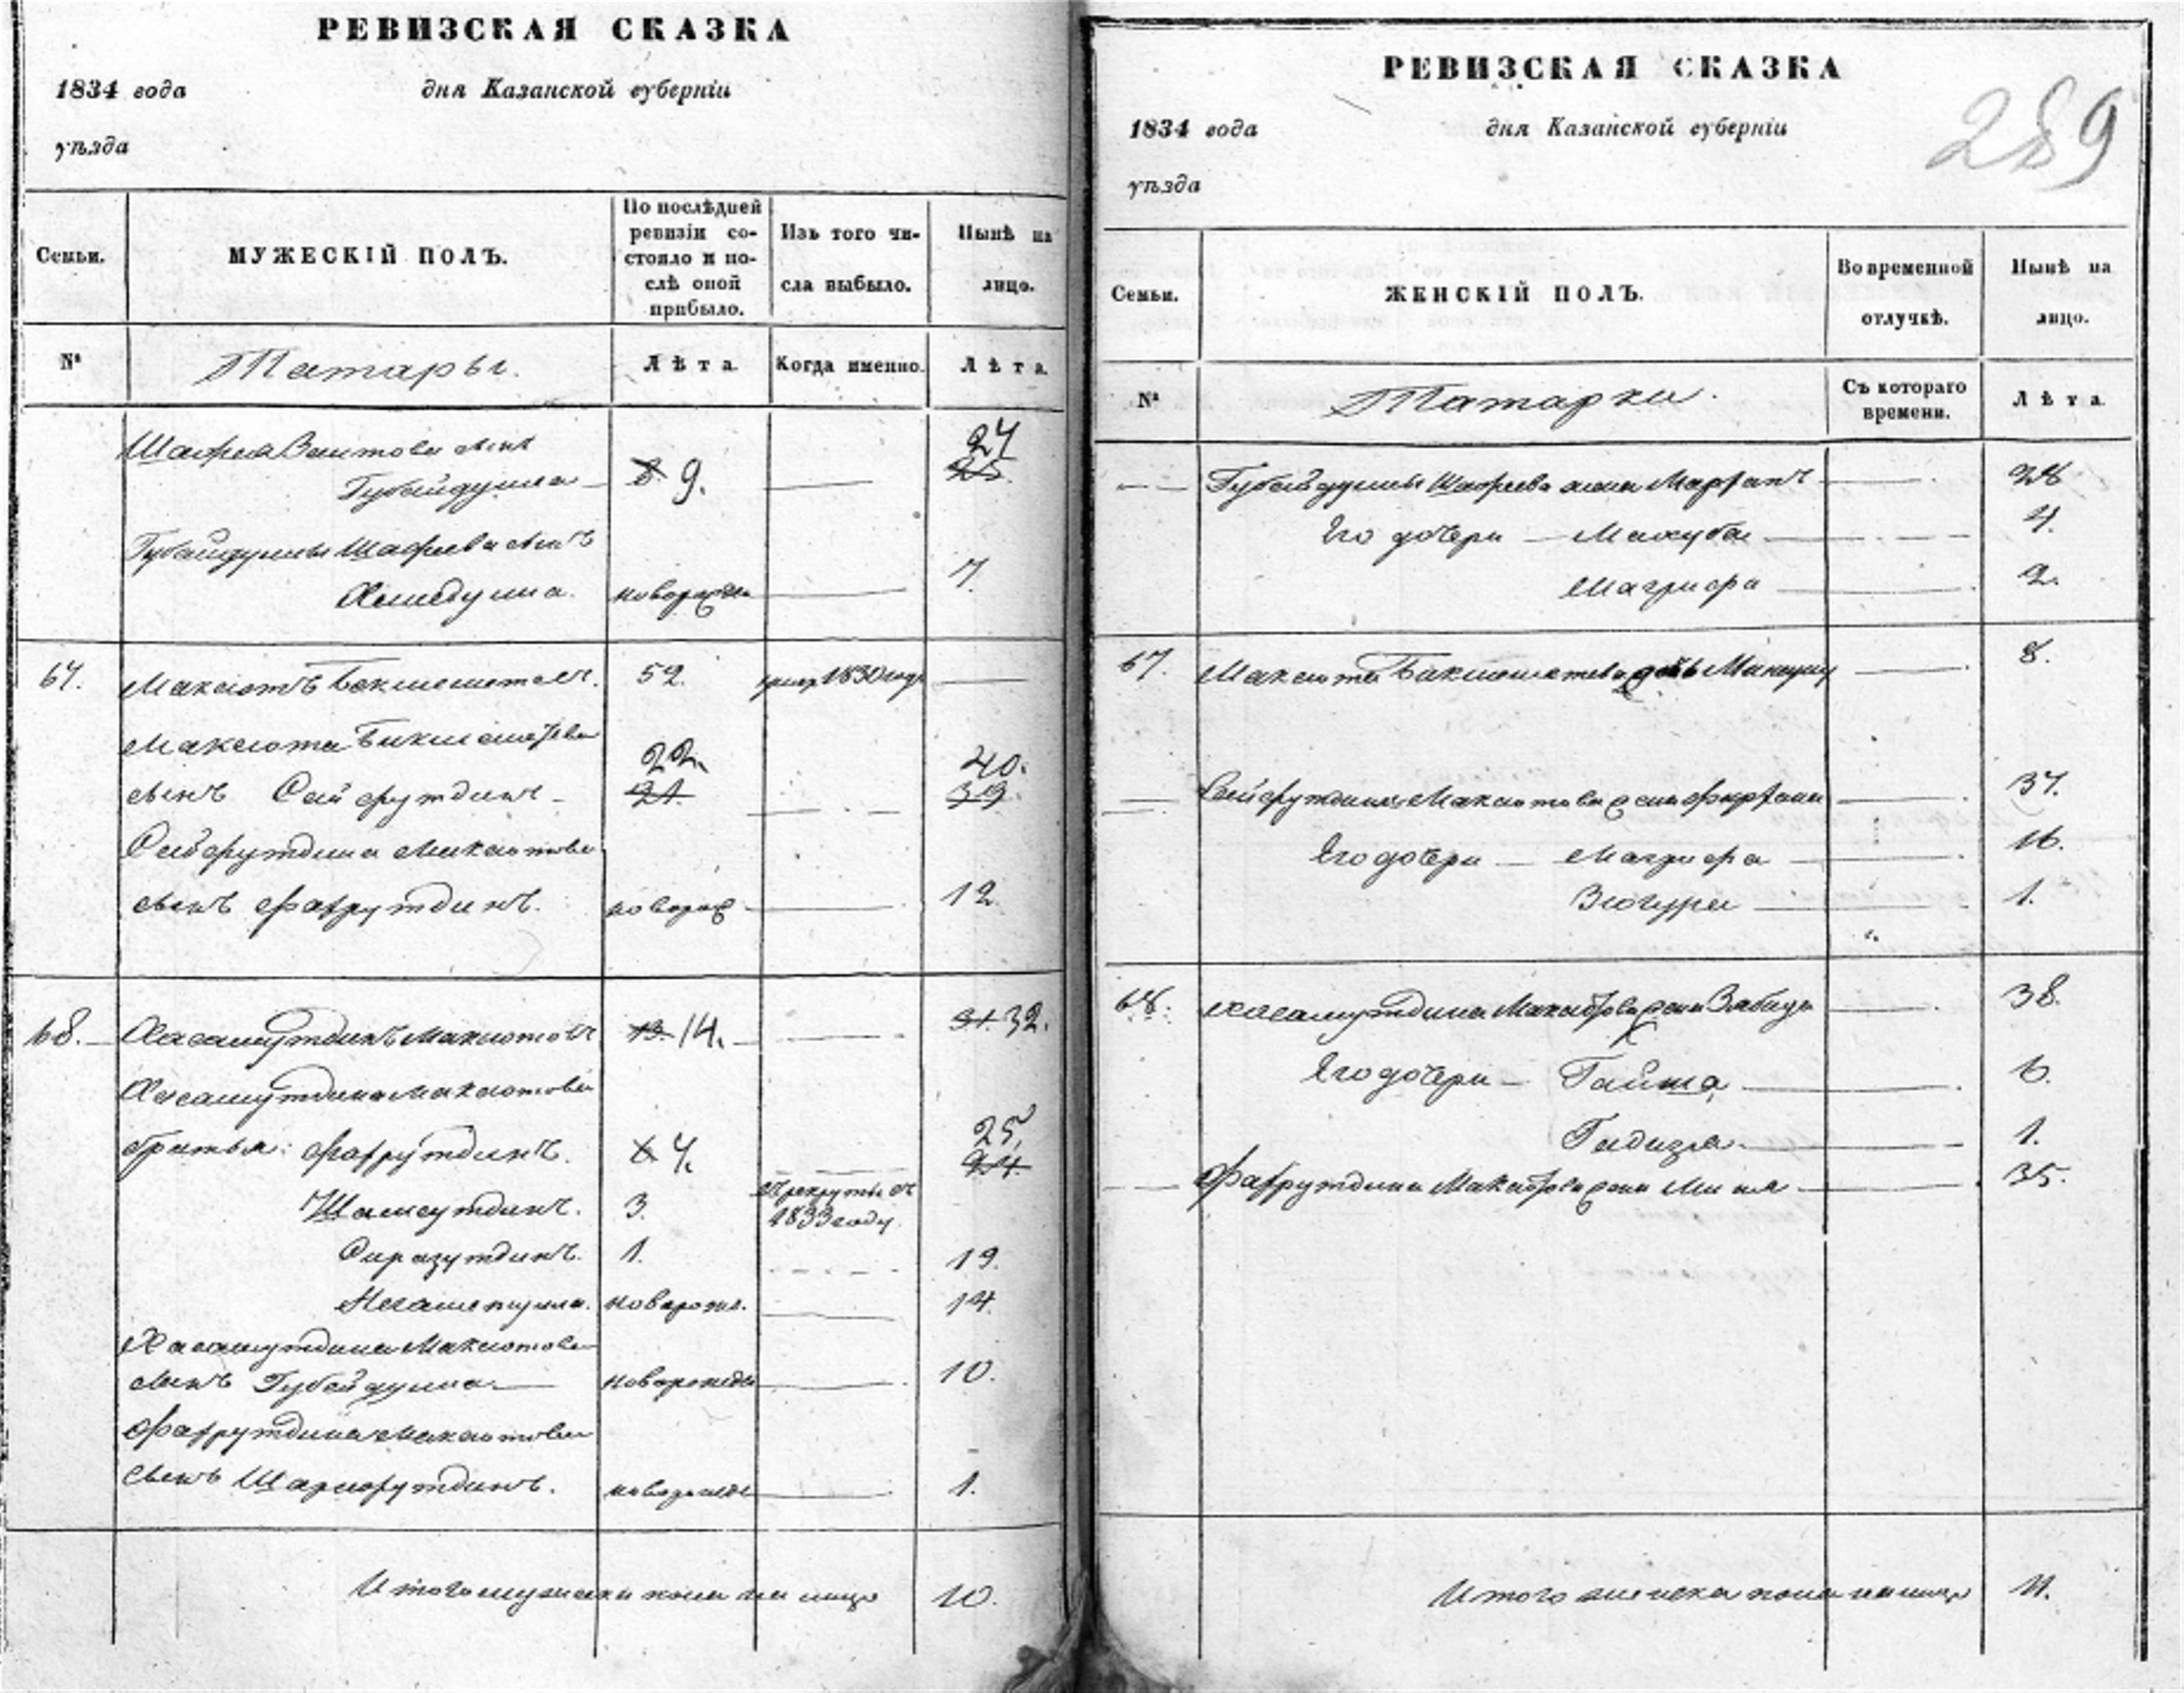 РЕВИЗСКАЯ СКАЗКА
1834 года дня Казанской губерніи
уѣзда
Семьи. МУЖЕСКІЙ ПОЛЪ. По послѣдней ревизіи состояло и послѣ оной прибыло. Изъ того числа выбыло. Нынѣ на лицо.
№ Татары. Лѣта Когда именно. Лѣта.
Шафея Заитова сынъ 24
Губайдулла 8 9. 25
Губайдуллы Шафеева сынъ
Хамидулла. новорожден 7.
67. Максютъ Бекмеметевъ. 52. умер 1830 году
Максюта Бикмеметева
22. 40.
сынъ Сайфутдинъ 21. 39.
Сайфутдина Максютова
сынъ Фахрутдинъ. новорож 12.
68. Хасамутдинъ Максютовъ 13. 14. 31. 32.
Хасамутдина Максютова
братья: Фахрутдинъ. 4. 25. 24.
Шамсутдинъ. 3. въ рекруты въ 1833 году.
Сиразутдинъ. 1. 19.
новорож. 14.
Хасамутдина Максютова
сынъ Губейдулла новорожде 10.
Фахрутдина Максютова
сынъ Шарафутдинъ. новорожде 1.
Итого мужеска пола на лицо 10.
РЕВИЗСКАЯ СКАЗКА
289
1834 года дня Казанской губерніи
уѣзда
Семьи. ЖЕНСКІЙ ПОЛЪ. Во временной отлучкѣ. Нынѣ на лицо.
№ Татарки. Съ котораго времени. Лѣта
Губайдуллы Шафеева жена Марфанъ 28
Его дочери Махуба 4.
Магрифа 2.
67. Максюта Бикмеметева дочь 8.
Сайфутдина Максютова жена 37.
Его дочери Магрифа 16.
Зюгура 1.
68. Хасамутдина Максютова жена Забида 38.
Его дочери Гайша 6.
1.
Фахрутдина Максютова жена 35.
Итого женска пола на лицо 11.